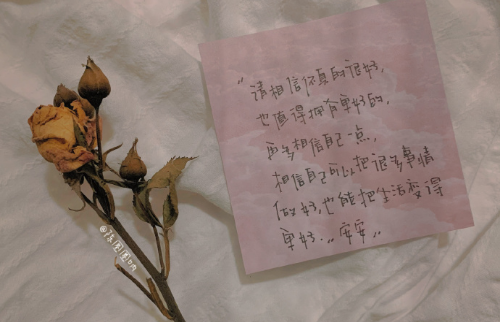 "请相信你真的很好,
也值得拥有更好的,
再多相信自己一点,
相信自己可以把很多事情
做好,也能把生活变得
更好.„安安„